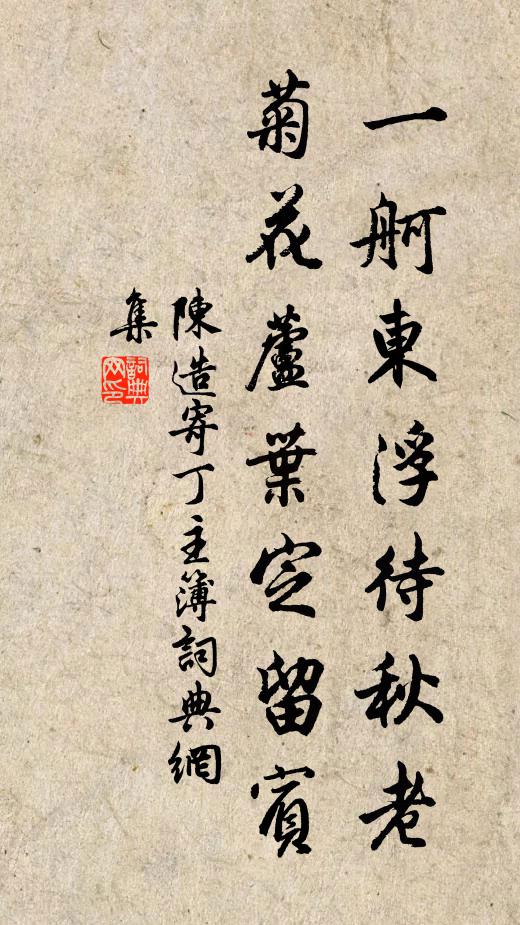 一舸東浮待秋老
菊花蘆葉定留賓
陳造寄丁主簿詞典網
集
詞典網印